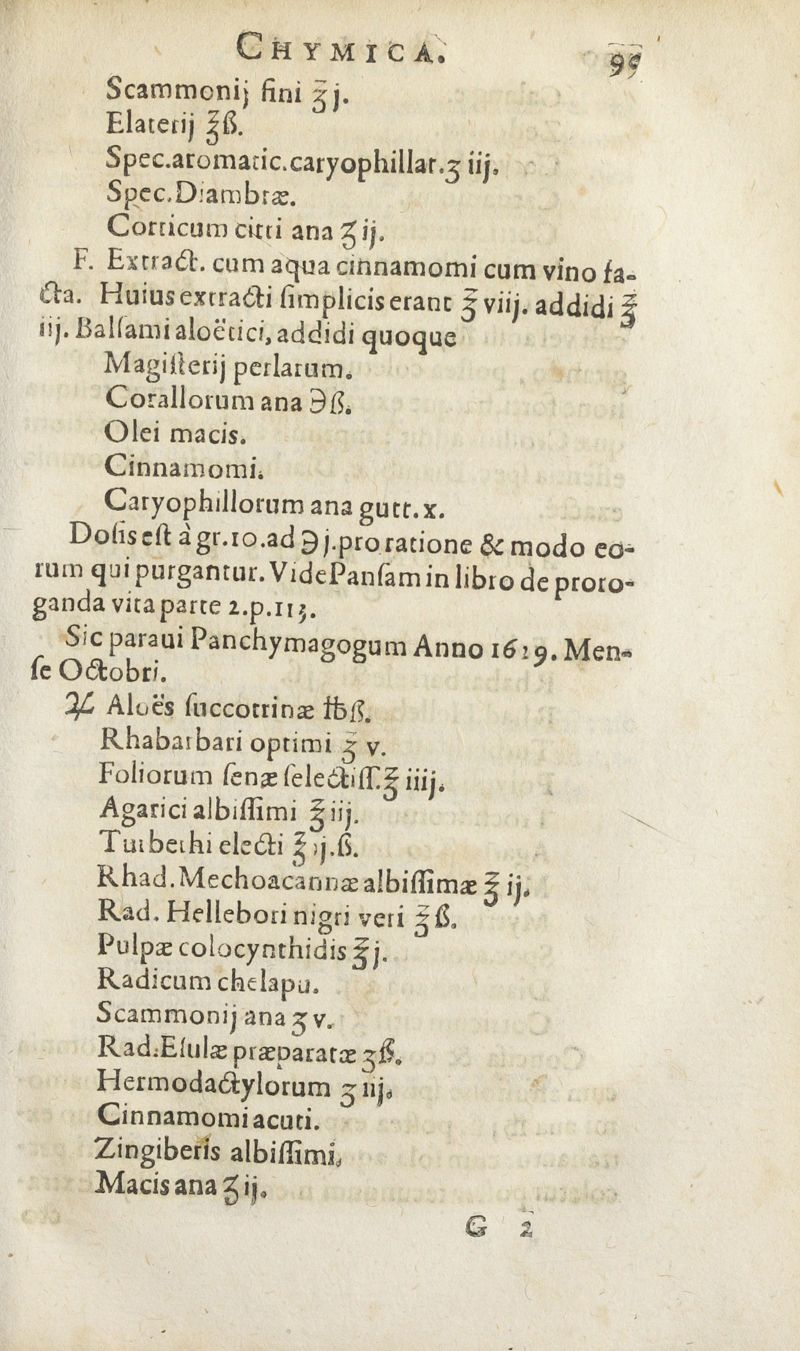 CHYMICA. 99
Scammonij fini ℥j.
Elaterij ℥ß.
Spec.aromatic.caryophillat.ʒ iij.
Spec.Diambræ.
Corticum citri ana ʒ ij.
F. Extract. cum aqua cinnamomi cum vino fa-
cta. Huius extracti ſimplicis erant ℥ viij. addidi ℥
iij. Balſami aloëtici, addidi quoque
Magiſterij perlarum.
Corallorum ana ℈ß.
Olei macis.
Cinnamomi.
Caryophillorum ana gutt.x.
Doſis eſt à gr.10.ad ℈j.pro ratione & modo eo-
rum qui purgantur. Vide Panſam in libro de proro-
ganda vita parte 2.p.113.
Sic paraui Panchymagogum Anno 1619. Men-
ſe Octobri.
♃ Aloës ſuccotrinæ ℔ß.
Rhabarbari optimi ℥ v.
Foliorum ſenæ ſelectiſſ.℥ iiij.
Agarici albiſſimi ℥iij.
Turbethi electi ℥ ij.ß.
Rhad.Mechoacannæ albiſſimæ ℥ ij.
Rad. Hellebori nigri veri ℥ß.
Pulpæ colocynthidis ℥j.
Radicum chelapu.
Scammonij ana ʒ v.
Rad.Eſulæ præparatæ ʒß.
Hermodactylorum ʒ iij.
Cinnamomi acuti.
Zingiberis albiſſimi.
Macis ana ʒ ij.
G 2